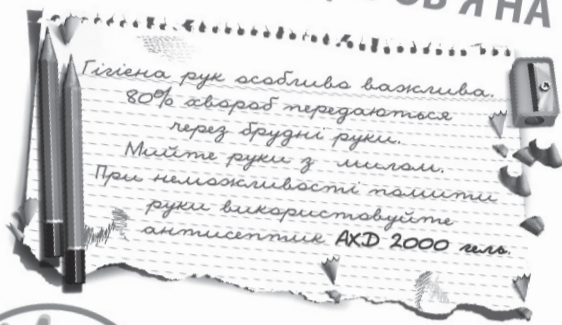 Я НА
Гігієна рук особливо важлива.
80% хвороб передаються
через брудні руки.
Мийте руки з милом.
При неможливості помити
руки використовуйте
антисептик АХД 2000 гель.